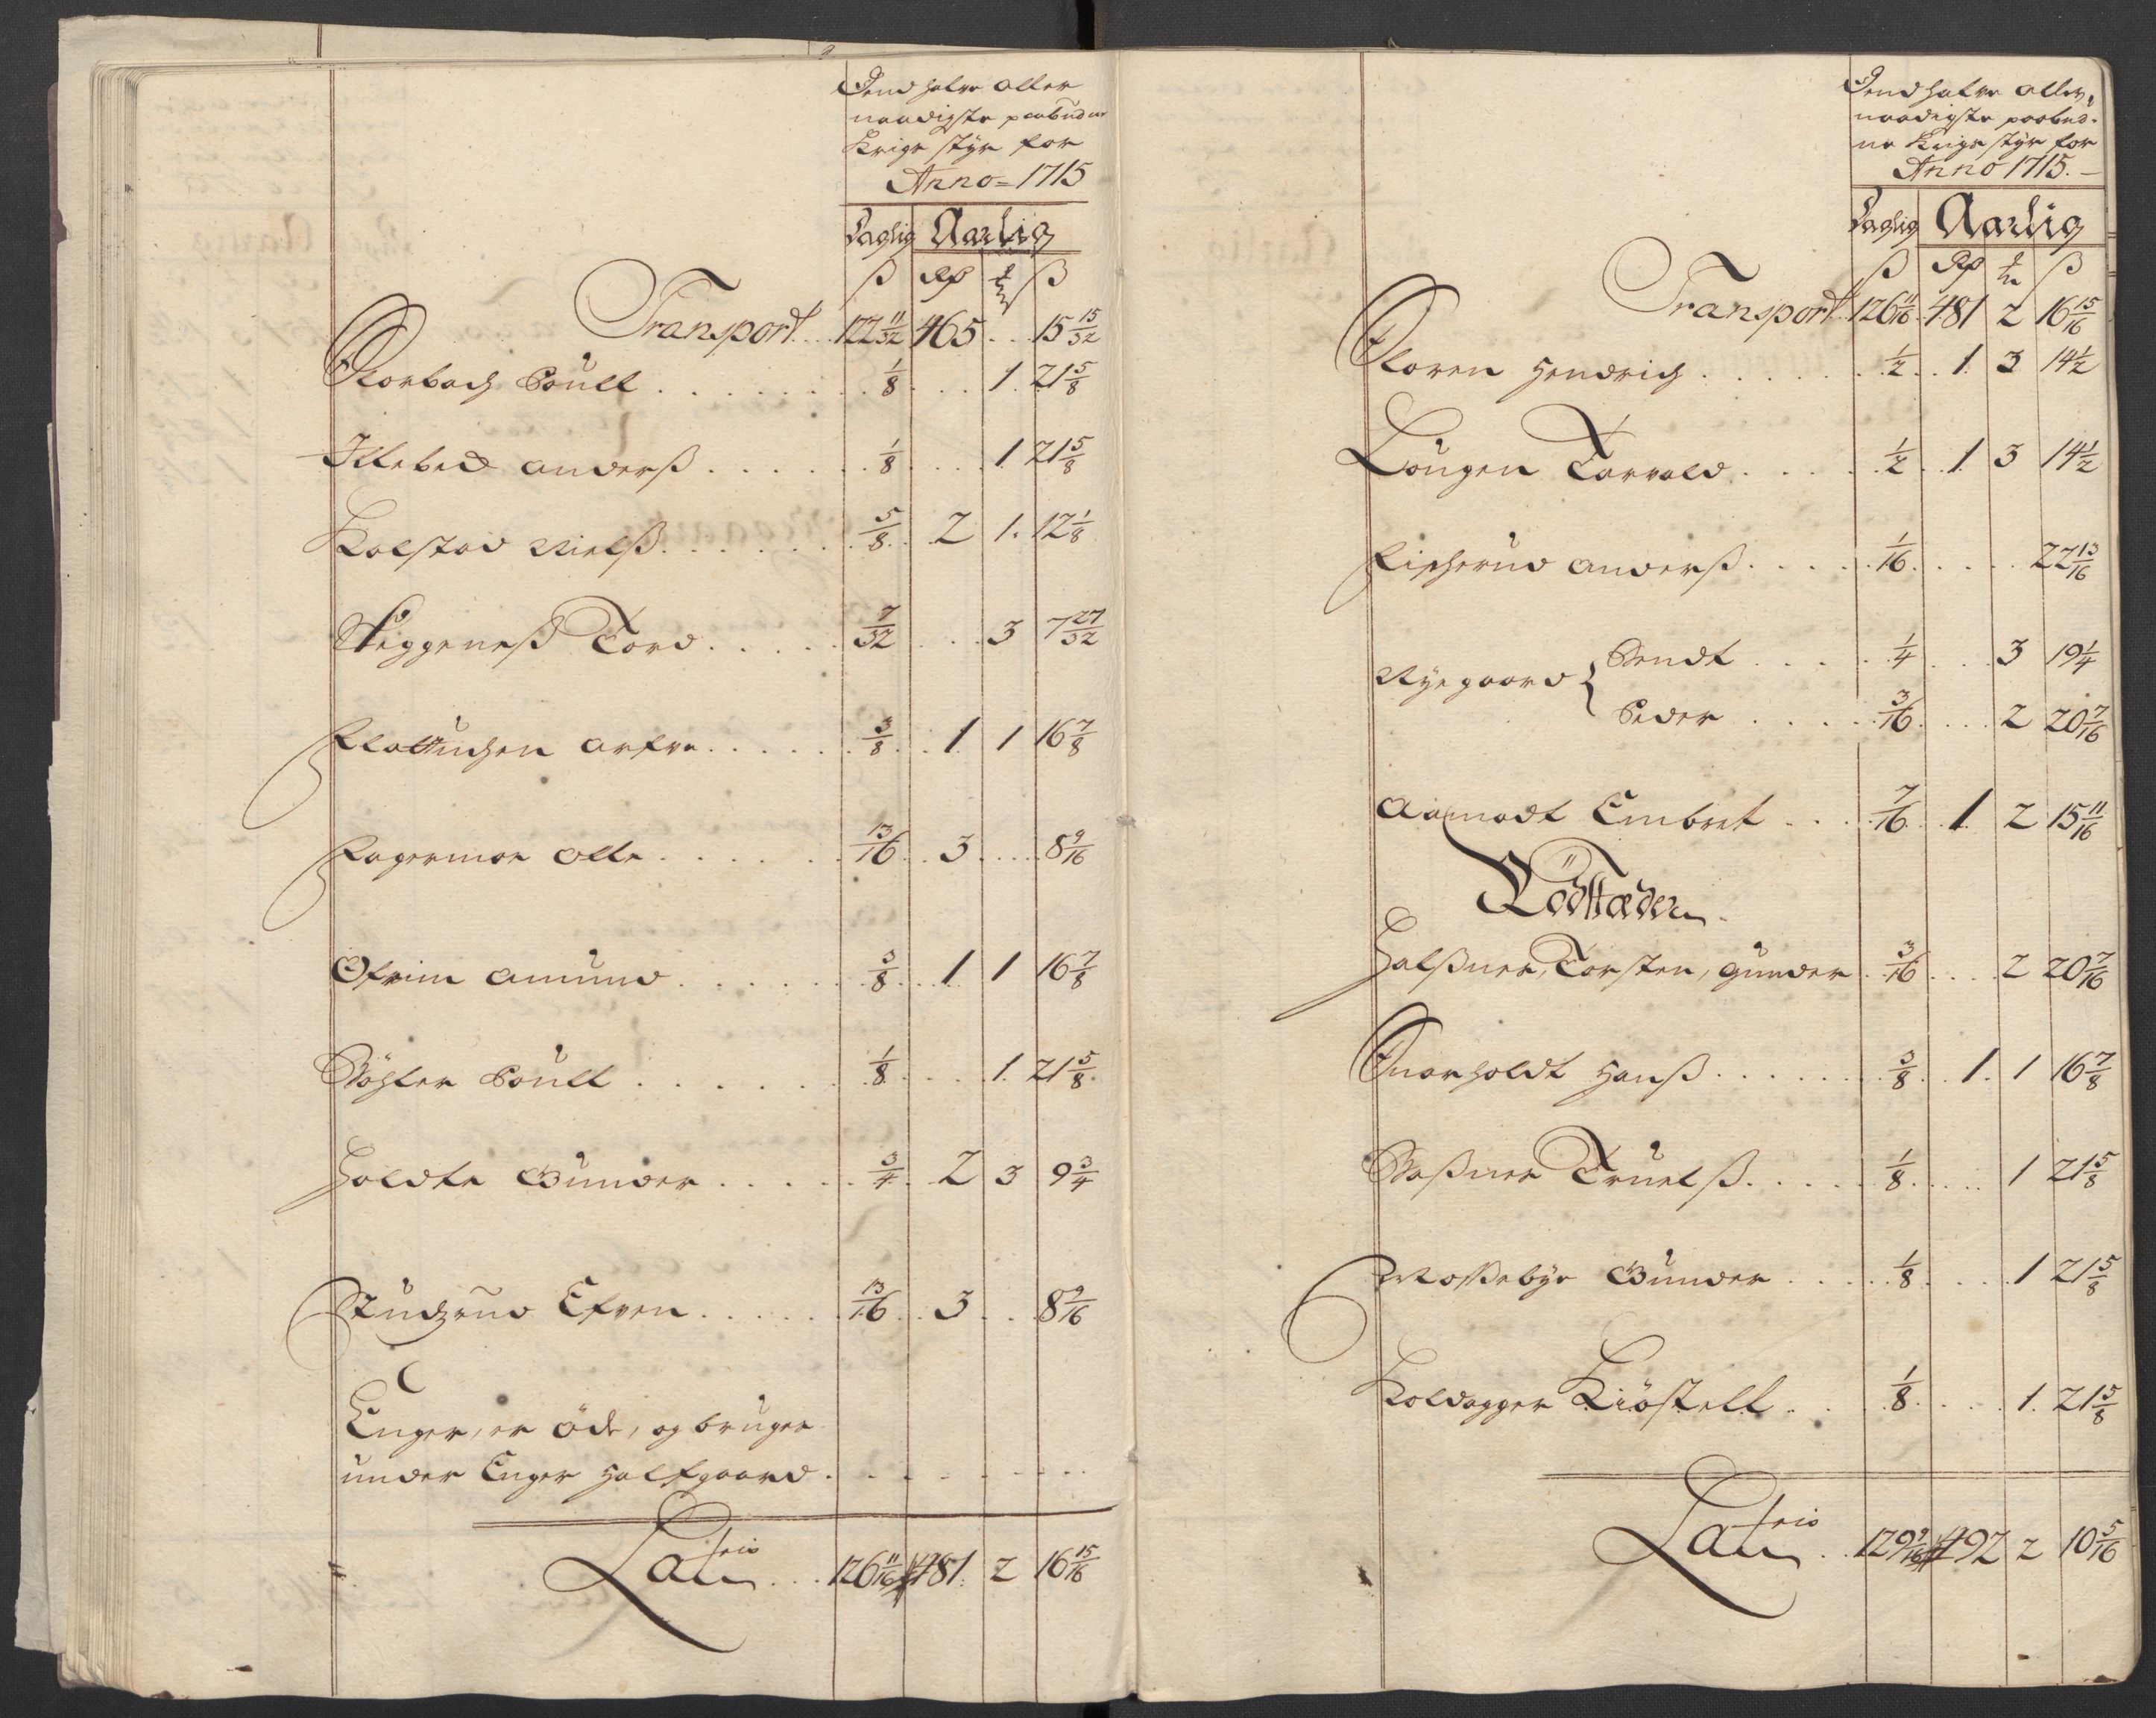 Dend halve aller
naadigste paabudne
Krigs styr for
Anno = 1715
Daglig Aarlig
ß Rdr ß
Transport 122 11/32 465 15 15/32
Korbach Poull 1/8 1 21 5/8
Illebed Anderß 1/8 1 21 5/8
Kolstad Nielß 5/8 2 1 12 1/8
Tord 7/32 3 7 27/32
3/8 1 1 16 7/8
Fagermoe Olle 13/16 3 8 9/16
Amund 3/8 1 1 16 7/8
Bøhler Poull 1/8 1 21 5/8
Holdte Gunder 3/4 2 3 9 3/4
Studzrud Efven 13/16 3 8 9/16
Enger, er öde, og bruges
under Enger halfgaard
Lateris 126 11/16 481 2 16 15/16
Dend halve aller
naadigste paabud-
ne Krigs styr for
Anno 1715.
Daglig Aarlig
ß Rdr ß
Transport 126 11/16 481 2 16 15/16
Floren Hendrich 1/2 1 3 14 1/2
Lougen Torvald 1/2 1 3 14 1/2
Fischerud Anderß 1/16 22 13/16
Nyegaard { Bendt 1/4 3 19 1/4
Peder 3/16 2 20 7/16
Aamodt Embret 7/16 1 2 15 11/16
Rödstæder
Halßner, Torsten, Gunder 3/16 2 20 7/16
Snarholdt Hanß 3/8 1 1 16 7/8
Baßmer Truelß 1/8 1 21 5/8
Moßebye Gunder 1/8 1 21 5/8
Koldagger Kiöstell 1/8 1 21 5/8
Lateris 129 9/16 492 2 10 5/16